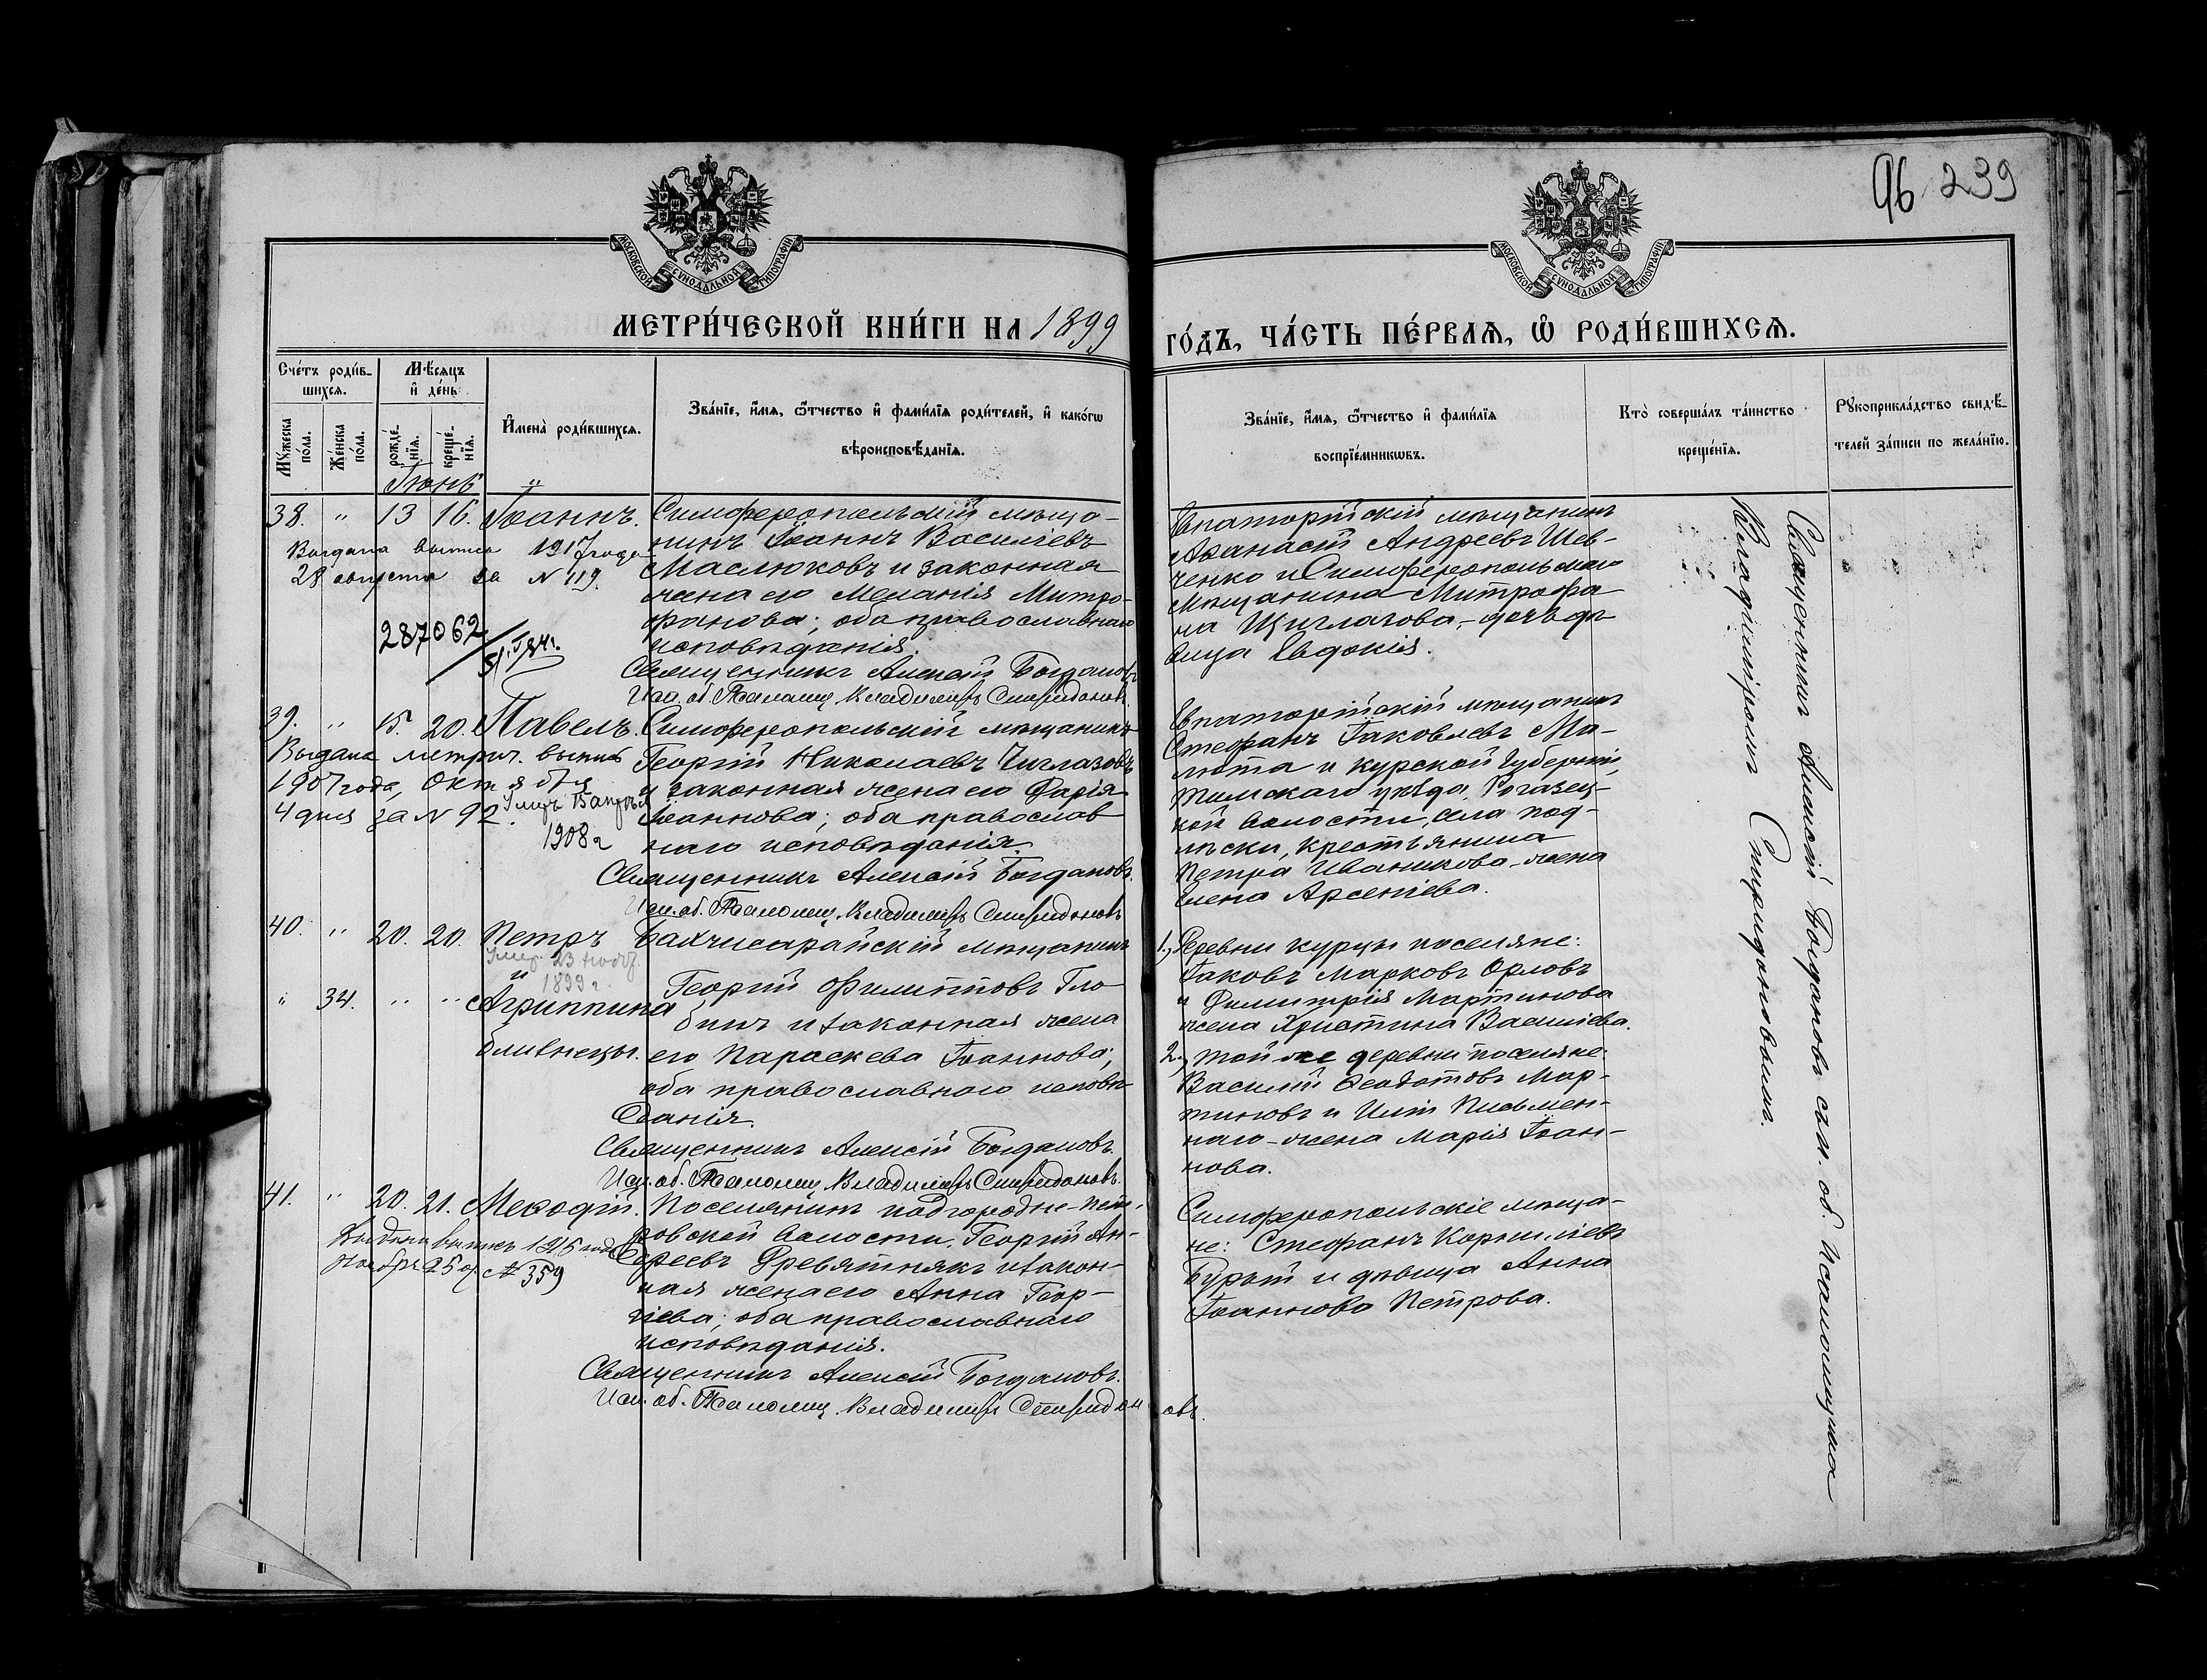 96 239
МОСКОВСКОЙ СѴНОДАЛЬНОЙ ТИПОГРАФІИ
МОСКОВСКОЙ СѴНОДАЛЬНОЙ ТИПОГРАФІИ
МЕТРИ́ЧЕСКОЙ КНИ́ГИ НА 1899
ГО́ДЪ, ЧА́СТЬ ПЕ́РВАЯ, Ѡ РОДИ́ВШИХСЯ.
Сче́тъ роди́в-
шихся.
Мꙋ́жеска по́ла.
Же́нска по́ла.
Мѣ́сяцъ
и҆ де́нь
рожде́-
нїя.
креще́-
нїя.
Іюнь
И҆мена̀ роди́вшихся.
Зва́нїе, и҆́мя, ѻ҆́тчество и҆ фами́лїя роди́телей, и҆ како́гѡ
вѣроисповѣ́данїя.
Зва́нїе, и҆́мя, ѻ҆́тчество и҆ фами́лїя
воспрїе́мникѡвъ.
Кто̀ соверша́лъ та́инство
креще́нїя.
Рꙋкоприкла́дство свидѣ́-
телей за́писи по жела́нїю.
38. " 13 16. Іоаннъ.
Выдана выпись 1917 года
28 августа за N 119.
287062
Симферопольскій мѣща-
нинъ Іоаннъ Василіевъ
Маслюковъ и законная
жена его Меланія Митро-
фанова; оба православнаго
исповѣданія.
Священникъ Алексій Богдановъ
Исп. об. Псаломщ. Владимиръ Спиридоновъ.
Евпаторійскій мѣщанинъ
Аѳанасій Андреевъ Шев-
ченко и Симферопольскаго
мѣщанина Митрофа
на Щиглазова, дочь дѣ
вица Евдокія.
39. " 15. 20. Павелъ.
Выдана метрич. выпись
1907 года, Октября
4 дня за N 92.
1908 г
Симферопольскій мѣщанинъ
Георгій Николаевъ Чиглазовъ
и законная жена его Дарія
Іоаннова; оба православ
наго исповѣданія.
Священникъ Алексій Богдановъ.
Исп. об. Псаломщ. Владимиръ Спиридоновъ
Евпаторійскій мѣщанинъ
Стефанъ Іаковлевъ Ма-
люта и курской губерніи,
Тимскаго уѣзда, Рогозец-
кой волости, села под-
лѣски, крестьянина
Петра Иванникова жена
Елена Арсеніева.
40. " 20. 20. Петръ
Умер. 23 ноябр.
1899 г.
и
" 34. " " Агриппина
близнецы.
Бахчисарайскій мѣщанинъ
Георгій Филипповъ Гло
бинъ и законная жена
его Параскева Іоаннова;
оба православнаго исповѣ
данія.
Священникъ Алексій Богдановъ.
Исп. об. Псаломщ. Владимиръ Спиридоновъ.
1., Деревни курцы поселяне:
Іаковъ Марковъ Орловъ
и Димитрія Мартинова
жена Христина Василіева.
2., той же деревни поселяне:
Василій Ѳеодотовъ Мар-
тиновъ и Иліи Письмен-
наго жена Марія Іоан-
нова.
41. " 20. 21. Меѳодій.
Выдана выпись 1915 года
Ноября 25 д. № 359
Поселянинъ подгородне-пет-
ровской волости, Георгій Ан-
дреевъ Древятнякъ и закон-
ная жена его Анна Геор-
гіева; оба православнаго
исповѣданія.
Священникъ Алексій Богдановъ.
Исп. об. Псаломщ. Владимиръ Спиридоновъ.
Симферопольскіе мѣща-
не: Стефанъ Корниліевъ
Бурый и дѣвица Анна
Іоаннова Петрова.
Священникъ Алексій Богдановъ съ и. об. Псаломщика
Владиміромъ Спиридоновымъ.